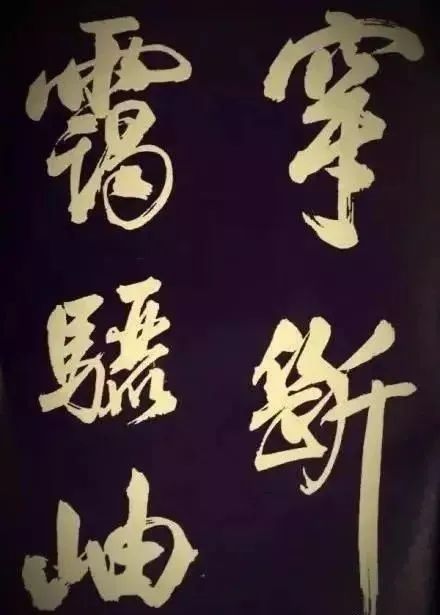 穿斷
靄驪岫